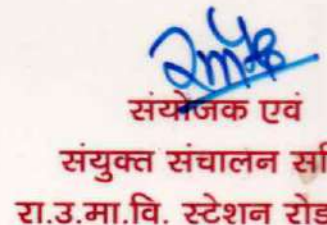 संयोजक एवं
संयुक्त संचालन
रा.उ.मा.वि. स्टेशन रोड